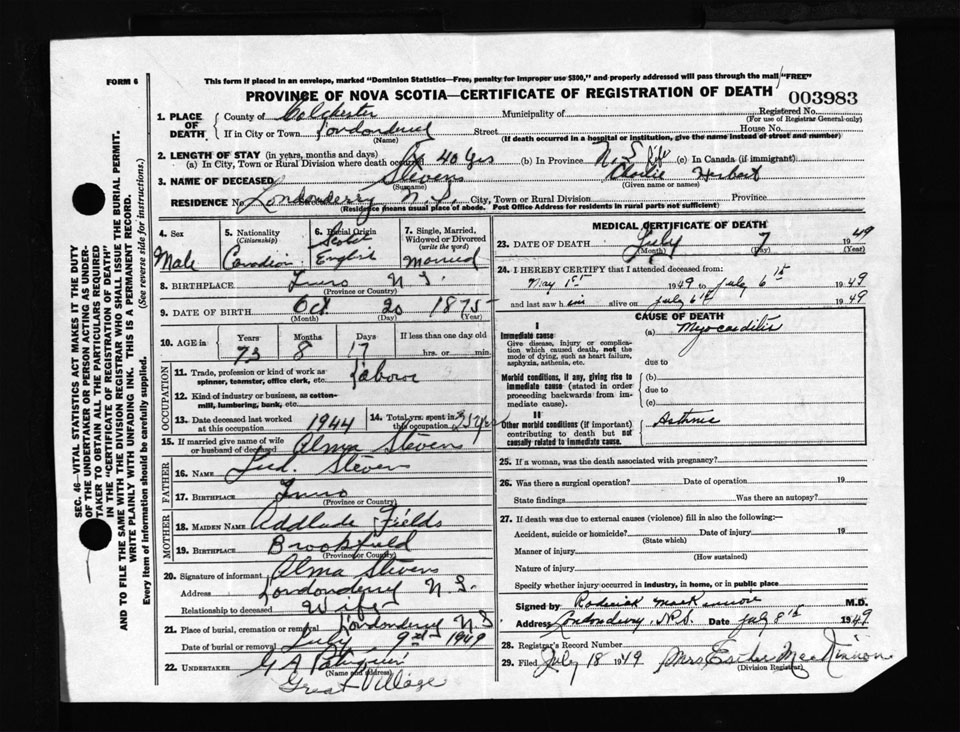 FORM 6
This form if placed in an envelope, marked "Dominion Statistics—Free, penalty for improper use $300," and properly addressed will pass through the mail "FREE"
PROVINCE OF NOVA SCOTIA—CERTIFICATE OF REGISTRATION OF DEATH 003983
SEC. 46—VITAL STATISTICS ACT MAKES IT THE DUTY
OF THE UNDERTAKER OR PERSON ACTING AS UNDER-
TAKER TO OBTAIN ALL THE PARTICULARS REQUIRED
IN THE "CERTIFICATE OF REGISTRATION OF DEATH"
AND TO FILE THE SAME WITH THE DIVISION REGISTRAR WHO SHALL ISSUE THE BURIAL PERMIT.
WRITE PLAINLY WITH UNFADING INK. THIS IS A PERMANENT RECORD.
Every item of information should be carefully supplied. (See reverse side for instructions.)
1. PLACE OF DEATH County of Colchester Municipality of Registered No.
(For use of Registrar General only)
If in City or Town Londonderry Street House No.
(Name) (If death occurred in a hospital or institution, give the name instead of street and number)
2. LENGTH OF STAY (in years, months and days)
(a) In City, Town or Rural Division where death occurred 40 yrs (b) In Province N.S. Life (c) In Canada (if immigrant)
3. NAME OF DECEASED Stevens Charlie Herbert
(Surname) (Given name or names)
RESIDENCE No. Londonderry N.S. City, Town or Rural Division Province
(Residence means usual place of abode. Post Office Address for residents in rural parts not sufficient)
4. Sex Male
5. Nationality (Citizenship) Canadian
6. Racial Origin Scotch English
7. Single, Married, Widowed or Divorced (write the word) Married
8. BIRTHPLACE Truro N.S.
(Province or Country)
9. DATE OF BIRTH Oct 20 1875
(Month) (Day) (Year)
10. AGE in Years 73 Months 8 Days 17 If less than one day old hrs. or min.
OCCUPATION
11. Trade, profession or kind of work as spinner, teamster, office clerk, etc. Labour
12. Kind of industry or business, as cotton-mill, lumbering, bank, etc.
13. Date deceased last worked at this occupation 1944
14. Total yrs. spent in this occupation 35 yrs
15. If married give name of wife or husband of deceased Alma Stevens
FATHER
16. Name Stevens
17. Birthplace Truro
(Province or Country)
MOTHER
18. Maiden Name Addlade Fields
19. Birthplace Brookfield
(Province or Country)
20. Signature of informant Alma Stevens
Address Londonderry N.S.
Relationship to deceased Wife
21. Place of burial, cremation or removal Londonderry N.S
Date of burial or removal July 9th 1949
22. UNDERTAKER G A
(Name and address)
Great Village
MEDICAL CERTIFICATE OF DEATH
23. DATE OF DEATH July 7 1949
(Month) (Day) (Year)
24. I HEREBY CERTIFY that I attended deceased from:
May 1st 1949 to July 6th 1949
and last saw him alive on July 6th 1949
CAUSE OF DEATH
I
Immediate cause (a) Myocarditis
Give disease, injury or complication which caused death, not the mode of dying, such as heart failure, asphyxia, asthenia, etc. due to
Morbid conditions, if any, giving rise to immediate cause (stated in order proceeding backwards from immediate cause). (b)
due to
(c)
II
Other morbid conditions (if important) contributing to death but not causally related to immediate cause.
25. If a woman, was the death associated with pregnancy?
26. Was there a surgical operation? Date of operation 19
State findings Was there an autopsy?
27. If death was due to external causes (violence) fill in also the following:—
Accident, suicide or homicide? Date of injury 19
(State which)
Manner of injury
(How sustained)
Nature of injury
Specify whether injury occurred in industry, in home, or in public place
Signed by Roderick MacKinnon M.D.
Address Londonderry, N.S. Date July 8th 1949
28. Registrar's Record Number
29. Filed July 18 1949 Mrs Esther MacKinnon
(Division Registrar)